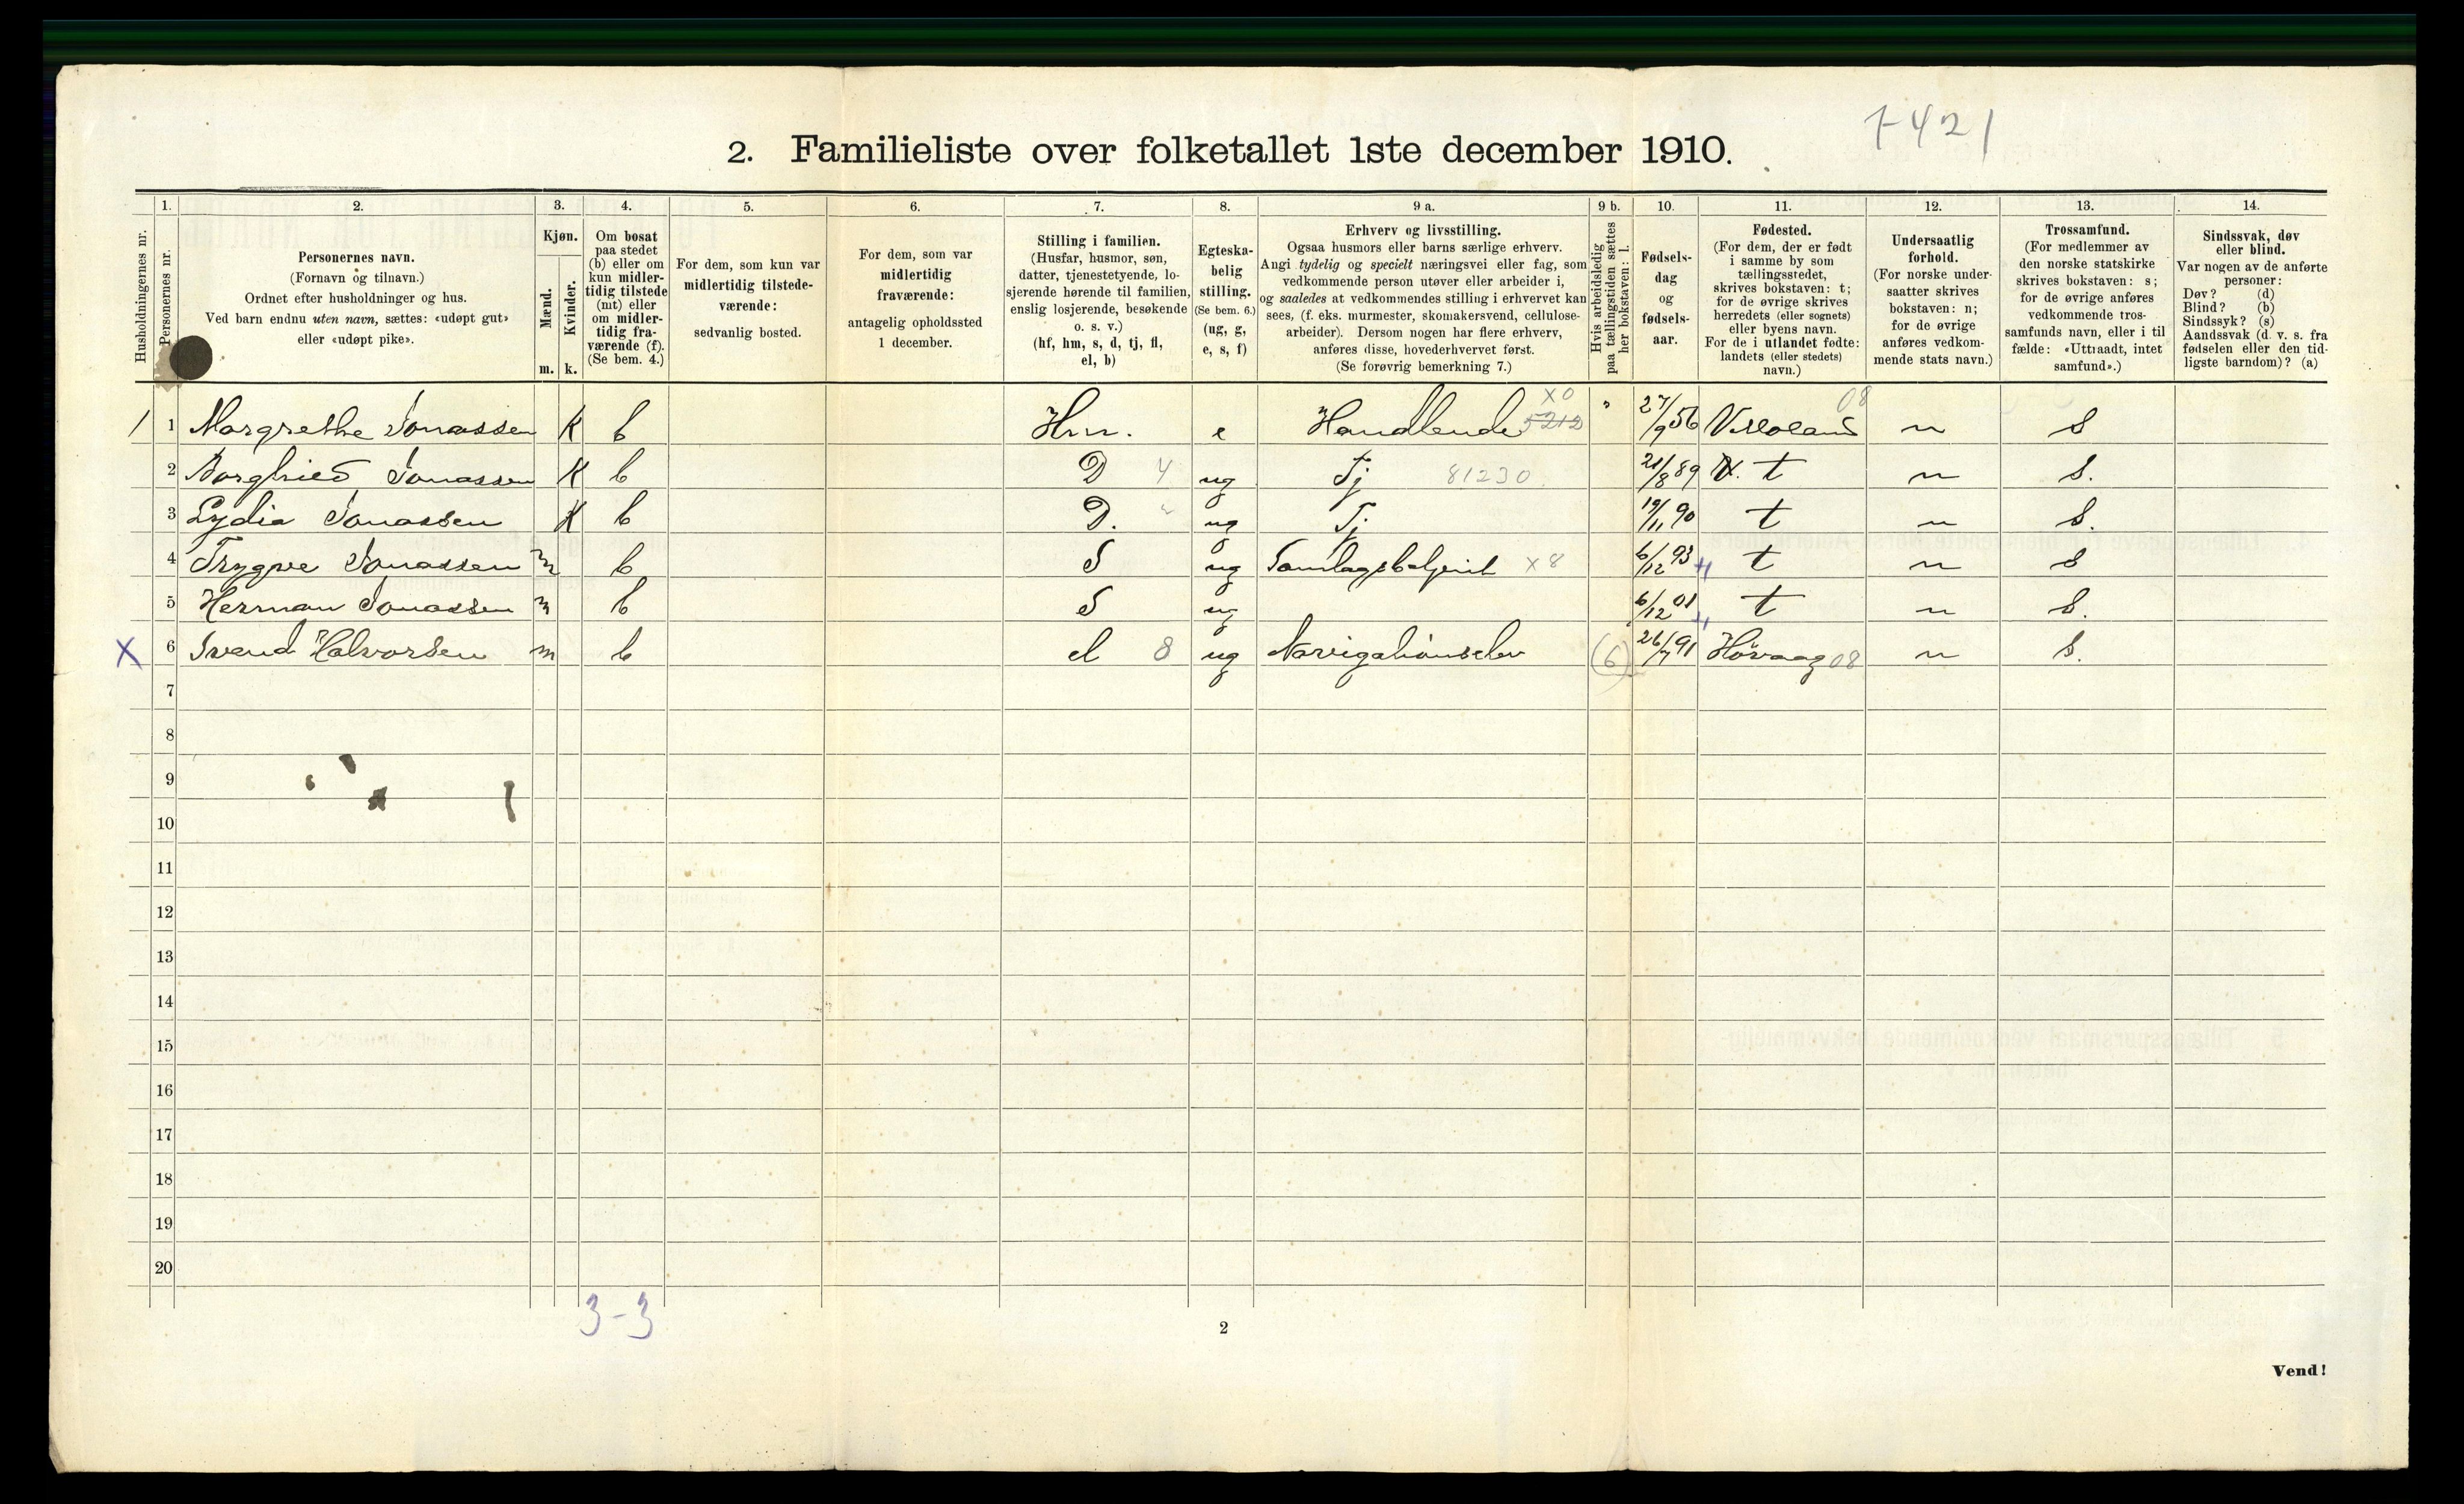 7421
2. Familieliste over folketallet 1ste december 1910.
1. 2. 3. 4. 5. 6. 7. 8. 9 a. 9 b. 10. 11. 12. 13. 14.
Husholdningernes nr.
Personernes nr.
Personernes navn.
(Fornavn og tilnavn.)
Ordnet efter husholdninger og hus.
Ved barn endnu uten navn, sættes: «udøpt gut»
eller «udøpt pike».
Kjøn.
Mænd.
Kvinder.
m. k.
Om bosat
paa stedet
(b) eller om
kun midler-
tidig tilstede
(mt) eller
om midler-
tidig fra-
værende (f).
(Se bem. 4.)
For dem, som kun var
midlertidig tilstede-
værende:
sedvanlig bosted.
For dem, som var
midlertidig
fraværende:
antagelig opholdssted
1 december.
Stilling i familien.
(Husfar, husmor, søn,
datter, tjenestetyende, lo-
sjerende hørende til familien,
enslig losjerende, besøkende
o. s. v.)
(hf, hm, s, d, tj, fl,
el, b)
Egteska-
belig
stilling.
(Se bem. 6.)
(ug, g,
e, s, f)
Erhverv og livsstilling.
Ogsaa husmors eller barns særlige erhverv.
Angi tydelig og specielt næringsvei eller fag, som
vedkommende person utøver eller arbeider i,
og saaledes at vedkommendes stilling i erhvervet kan
sees, (f. eks. murmester, skomakersvend, cellulose-
arbeider). Dersom nogen har flere erhverv,
anføres disse, hovederhvervet først.
(Se forøvrig bemerkning 7.)
Hvis arbeidsledig
paa tællingstiden sættes
her bokstaven: l.
Fødsels-
dag
og
fødsels-
aar.
Fødested.
(For dem, der er født
i samme by som
tællingsstedet,
skrives bokstaven: t;
for de øvrige skrives
herredets (eller sognets)
eller byens navn.
For de i utlandet fødte:
landets (eller stedets)
navn.)
Undersaatlig
forhold.
(For norske under-
saatter skrives
bokstaven: n;
for de øvrige
anføres vedkom-
mende stats navn.)
Trossamfund.
(For medlemmer av
den norske statskirke
skrives bokstaven: s;
for de øvrige anføres
vedkommende tros-
samfunds navn, eller i til
fælde: «Uttraadt, intet
samfund».)
Sindssvak, døv
eller blind.
Var nogen av de anførte
personer:
Døv? (d)
Blind? (b)
Sindssyk? (s)
Aandssvak (d. v. s. fra
fødselen eller den tid-
ligste barndom)? (a)
1 1 Margrethe Jonassen K b Hm. e Handlende 5212 x0 " 27/9 56 08 n S
2 Borghild Jonassen K b D 4 ug Tj 81230 21/8 89 t n S.
3 Lydia Jonassen K b D. " ug Tj 19/11 90 t n S.
4 Trygve Jonassen m b S ug Samlagsbetjent x8 6/12 93 t n S
5 Herman Jonassen m b S ug 6/12 01 t n S.
X 6 Svend Halvorsen m b el 8 ug Navigationselev (6) 26/7 91 Høvaag 08 n S.
7
8
9
10
11
12
13
14
15
16
17
18
19
20
3-3
2
Vend!